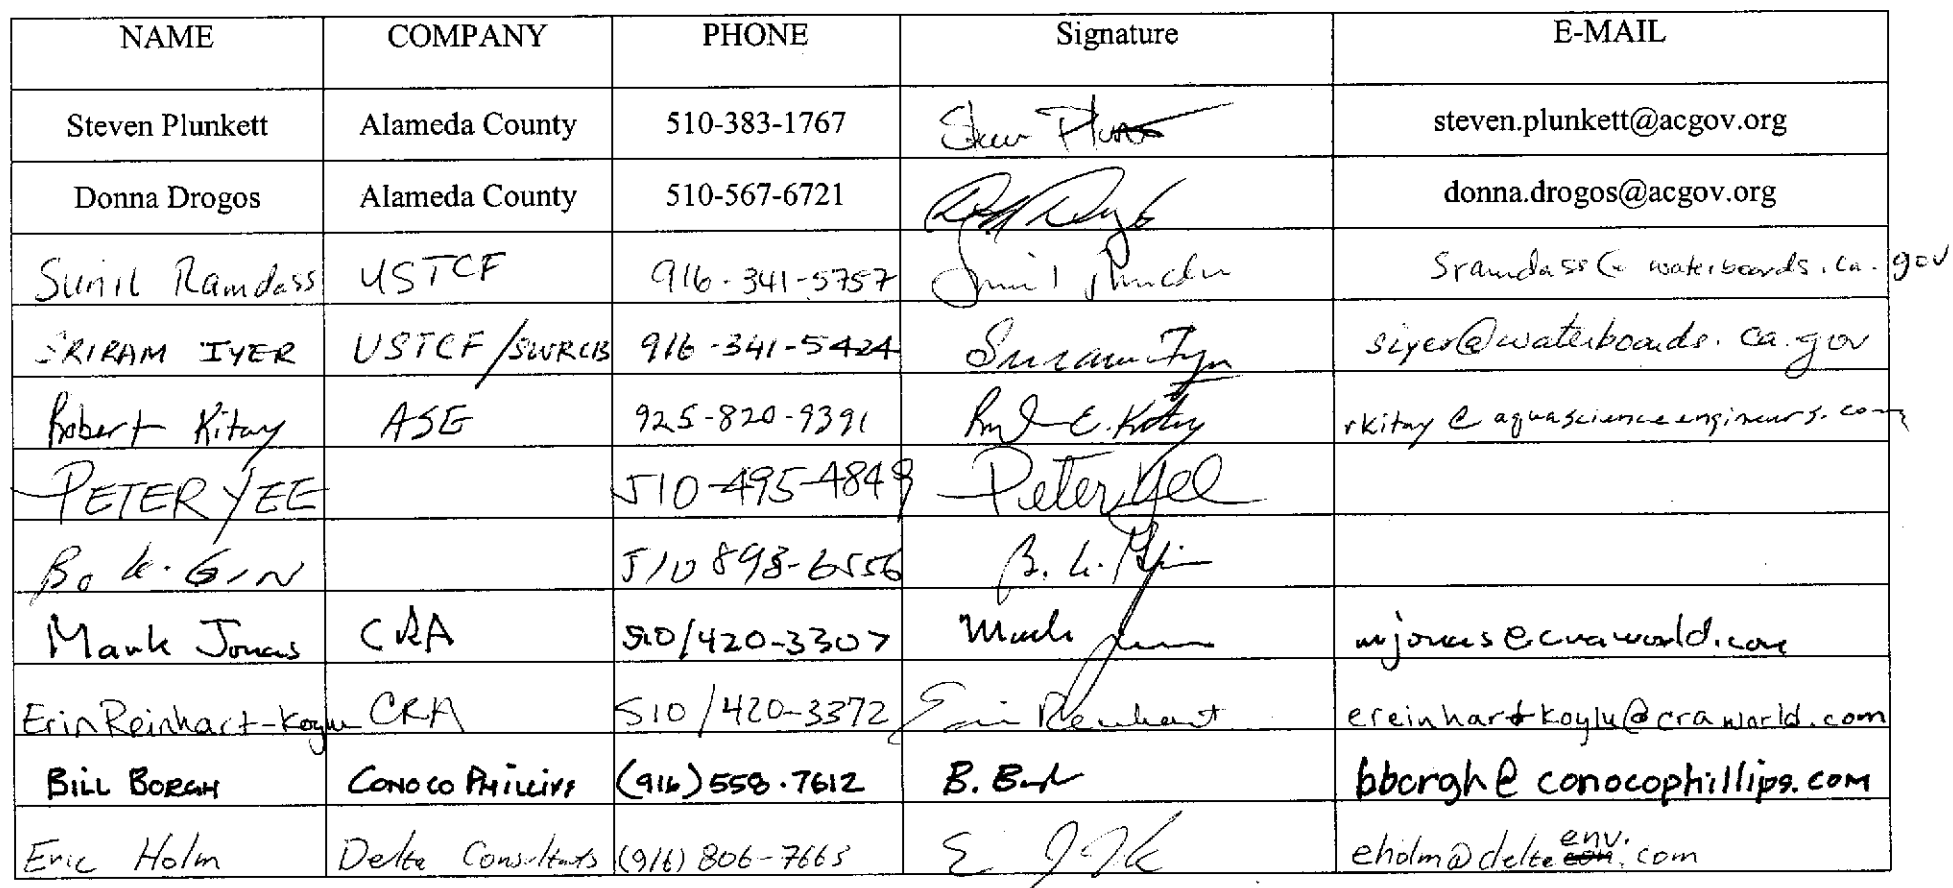 NAME COMPANY PHONE Signature E-MAIL
Steven Plunkett Alameda County 510-383-1767 steven.plunkett@acgov.org
Donna Drogos Alameda County 510-567-6721 donna.drogos@acgov.org
Sunil Ramdass USTCF 916-341-5757 Sramdass@waterboards.ca.gov
SRIRAM IYER USTCF/SWRCB 916-341-5424 siyer@waterboards.ca.gov
Robert Kitay ASE 925-820-9391 rkitay@aquascienceengineers.com
PETER YEE 510-495-4849 Peter Yee
Bo K. GIN 510 893-6556 B. K. Gin
Mark Jonas CRA 510/420-3307 Mark mjonas@craworld.com
Erin Reinhart-Koylu CRA 510/420-3372 Erin Reinhart ereinhartkoylu@craworld.com
BILL BORGH CONOCOPHILLIPS (916)558.7612 bborgh@conocophillips.com
Eric Holm Delta Consultants (916) 806-7665 eholm@deltaenv.com